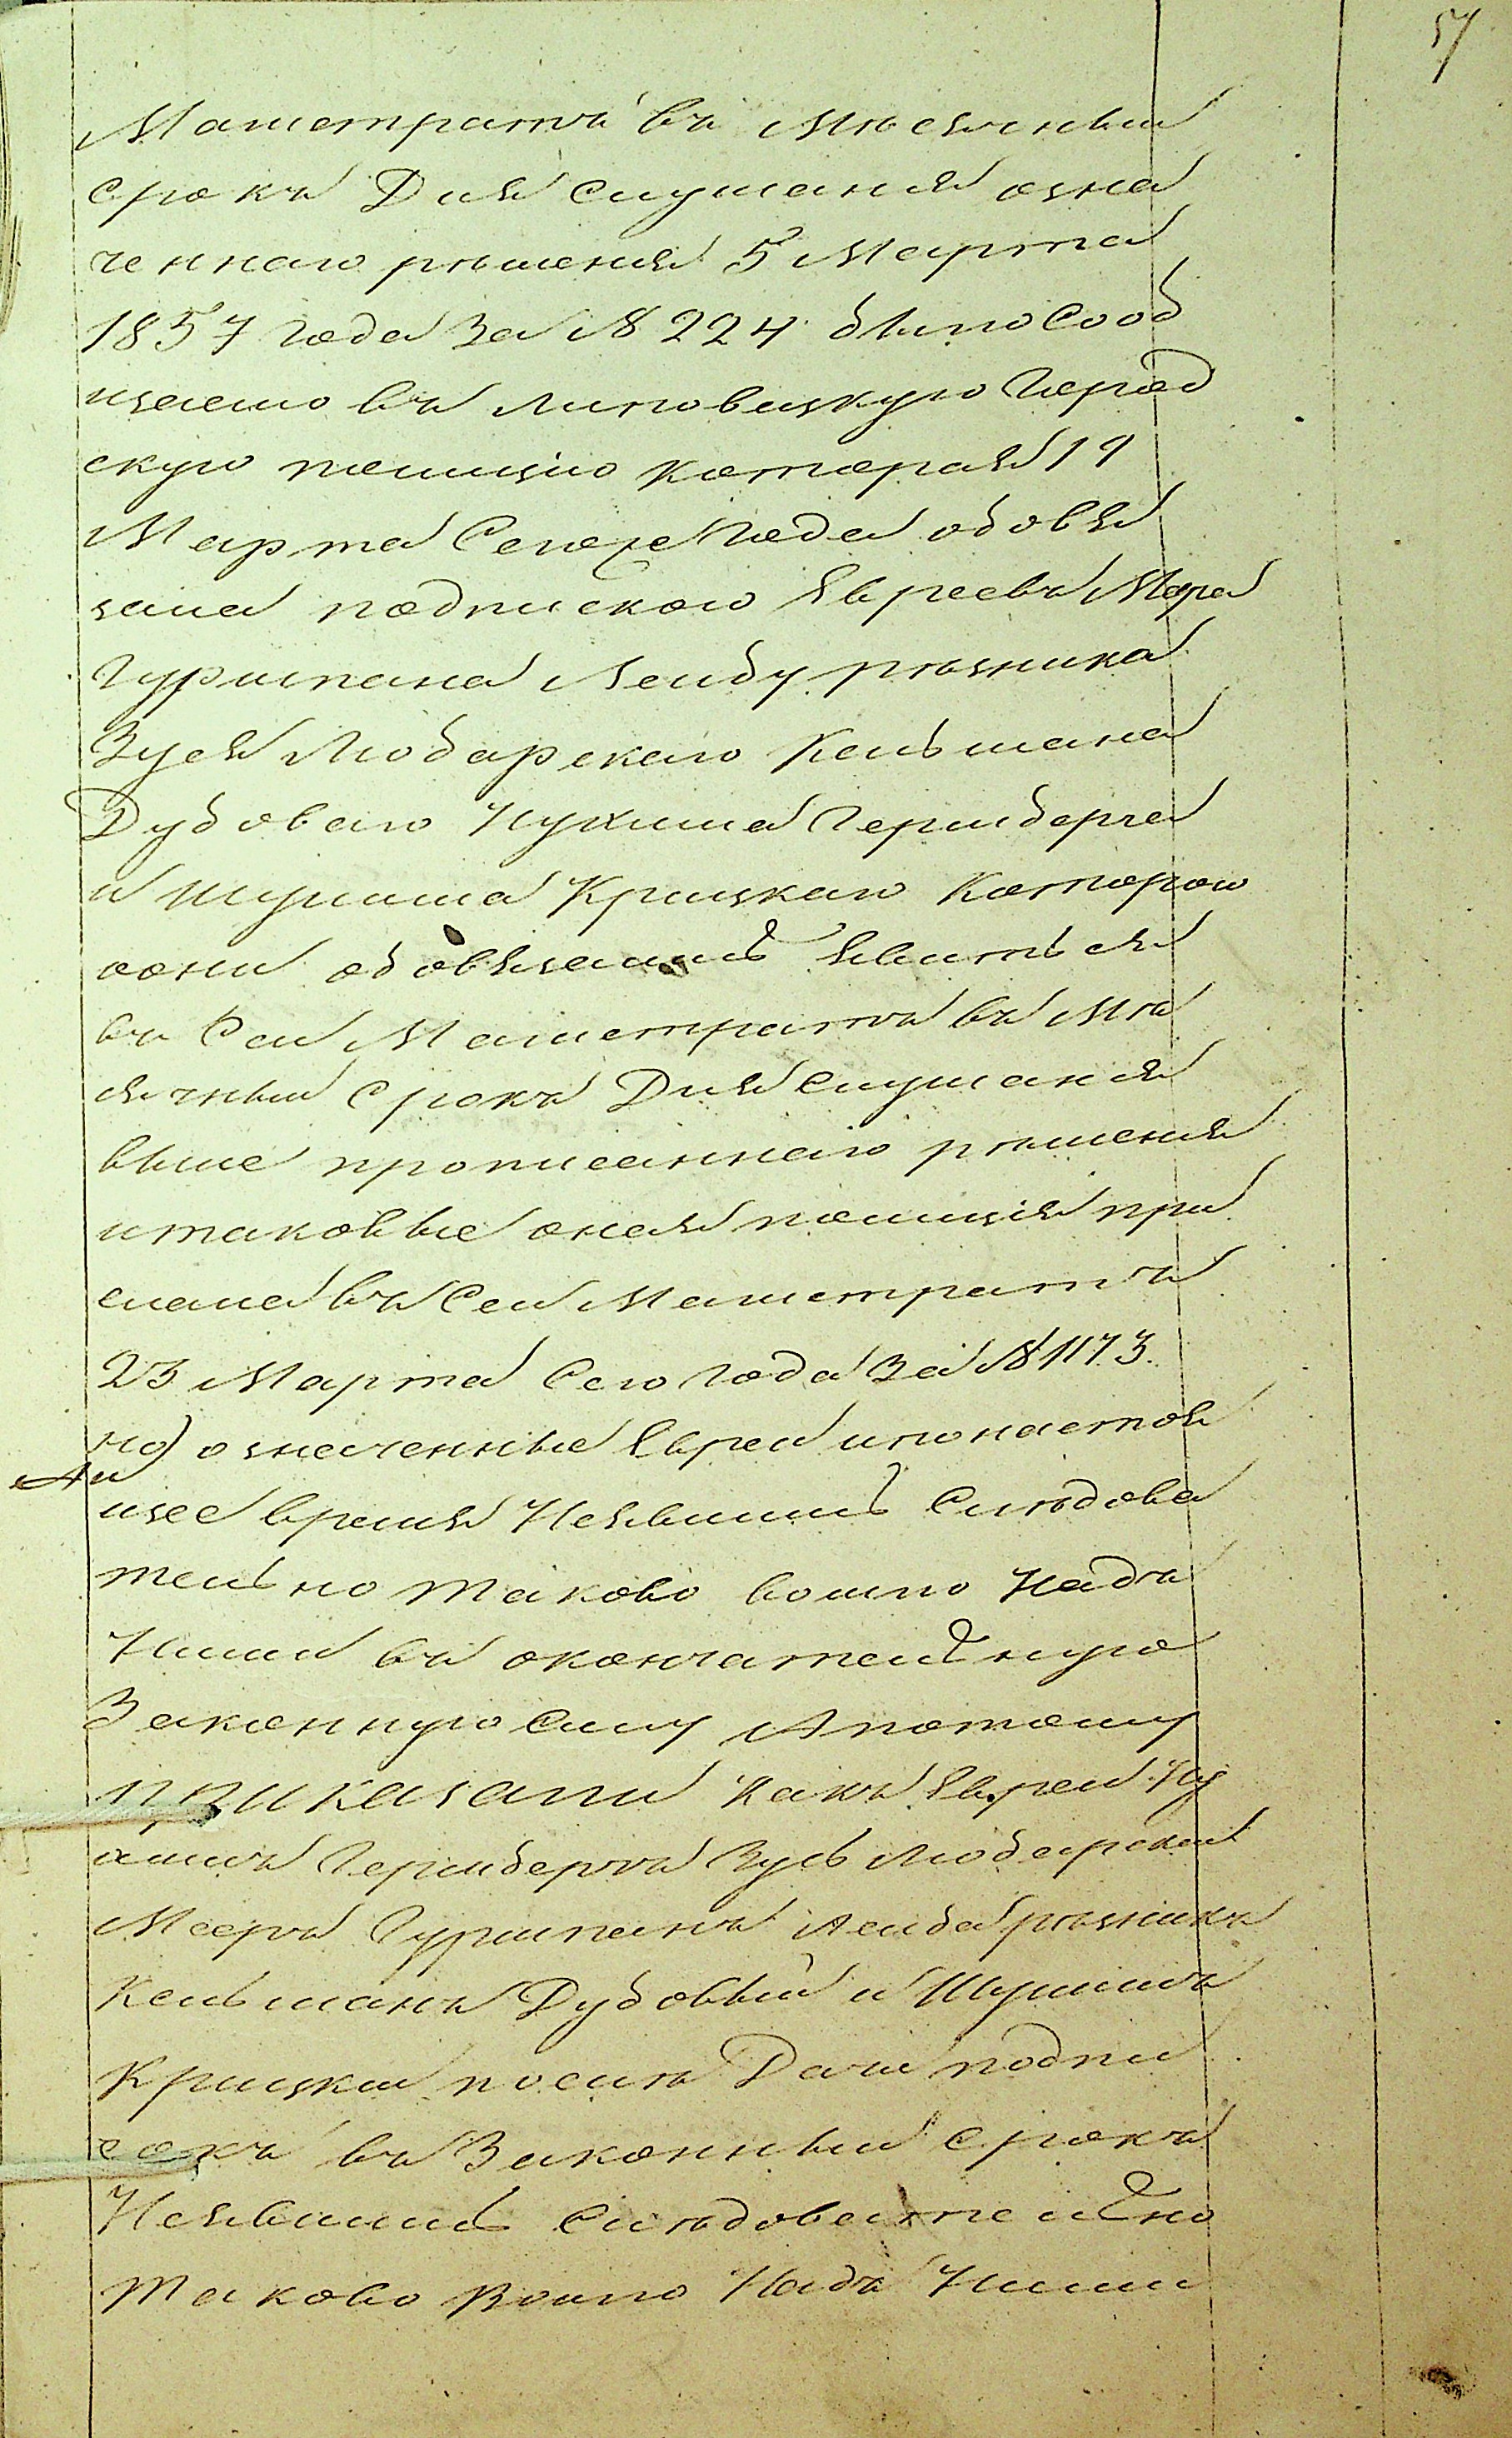 57
Магистратъ въ мѣсячный
срокъ для слушанія озна
ченнаго рѣшенія 5 Марта
1857 года за № 224 было сооб
щаемо въ липовецкую город
скую полицію которая 19
Марта Сего же года обовя
зала подпискою Евреевъ Мера
Гурштана Лейбу рѣзника
Зуся Любарскаго Кельмана
Дубоваго Нухима Гершберга
и Шулима Крицкаго которою
они обовязались явиться
въ Сей Магистратъ въ мѣ
сячный срокъ для слушанія
выше прописаннаго рѣшенія
и таковые оная полиція при
слала въ Сей Магистратъ
23 Марта Сего года за № 1173.
но) означенные Евреи и по настоя
щее время Неявились Слѣдова
тельно таково вошло Надъ
Ними въ окончательную
Законную Силу А потому
приказали какъ Евреи Ну
химъ Гершбергъ Зусь Любарскій
Мееръ Гурштанъ Лейба рѣзникъ
Кельманъ Дубовый и Шулимъ
Крицкий послѣ Дачи подпи
сокъ въ Законный срокъ
Неявились Слѣдовательно
таково вошло Надъ Ними